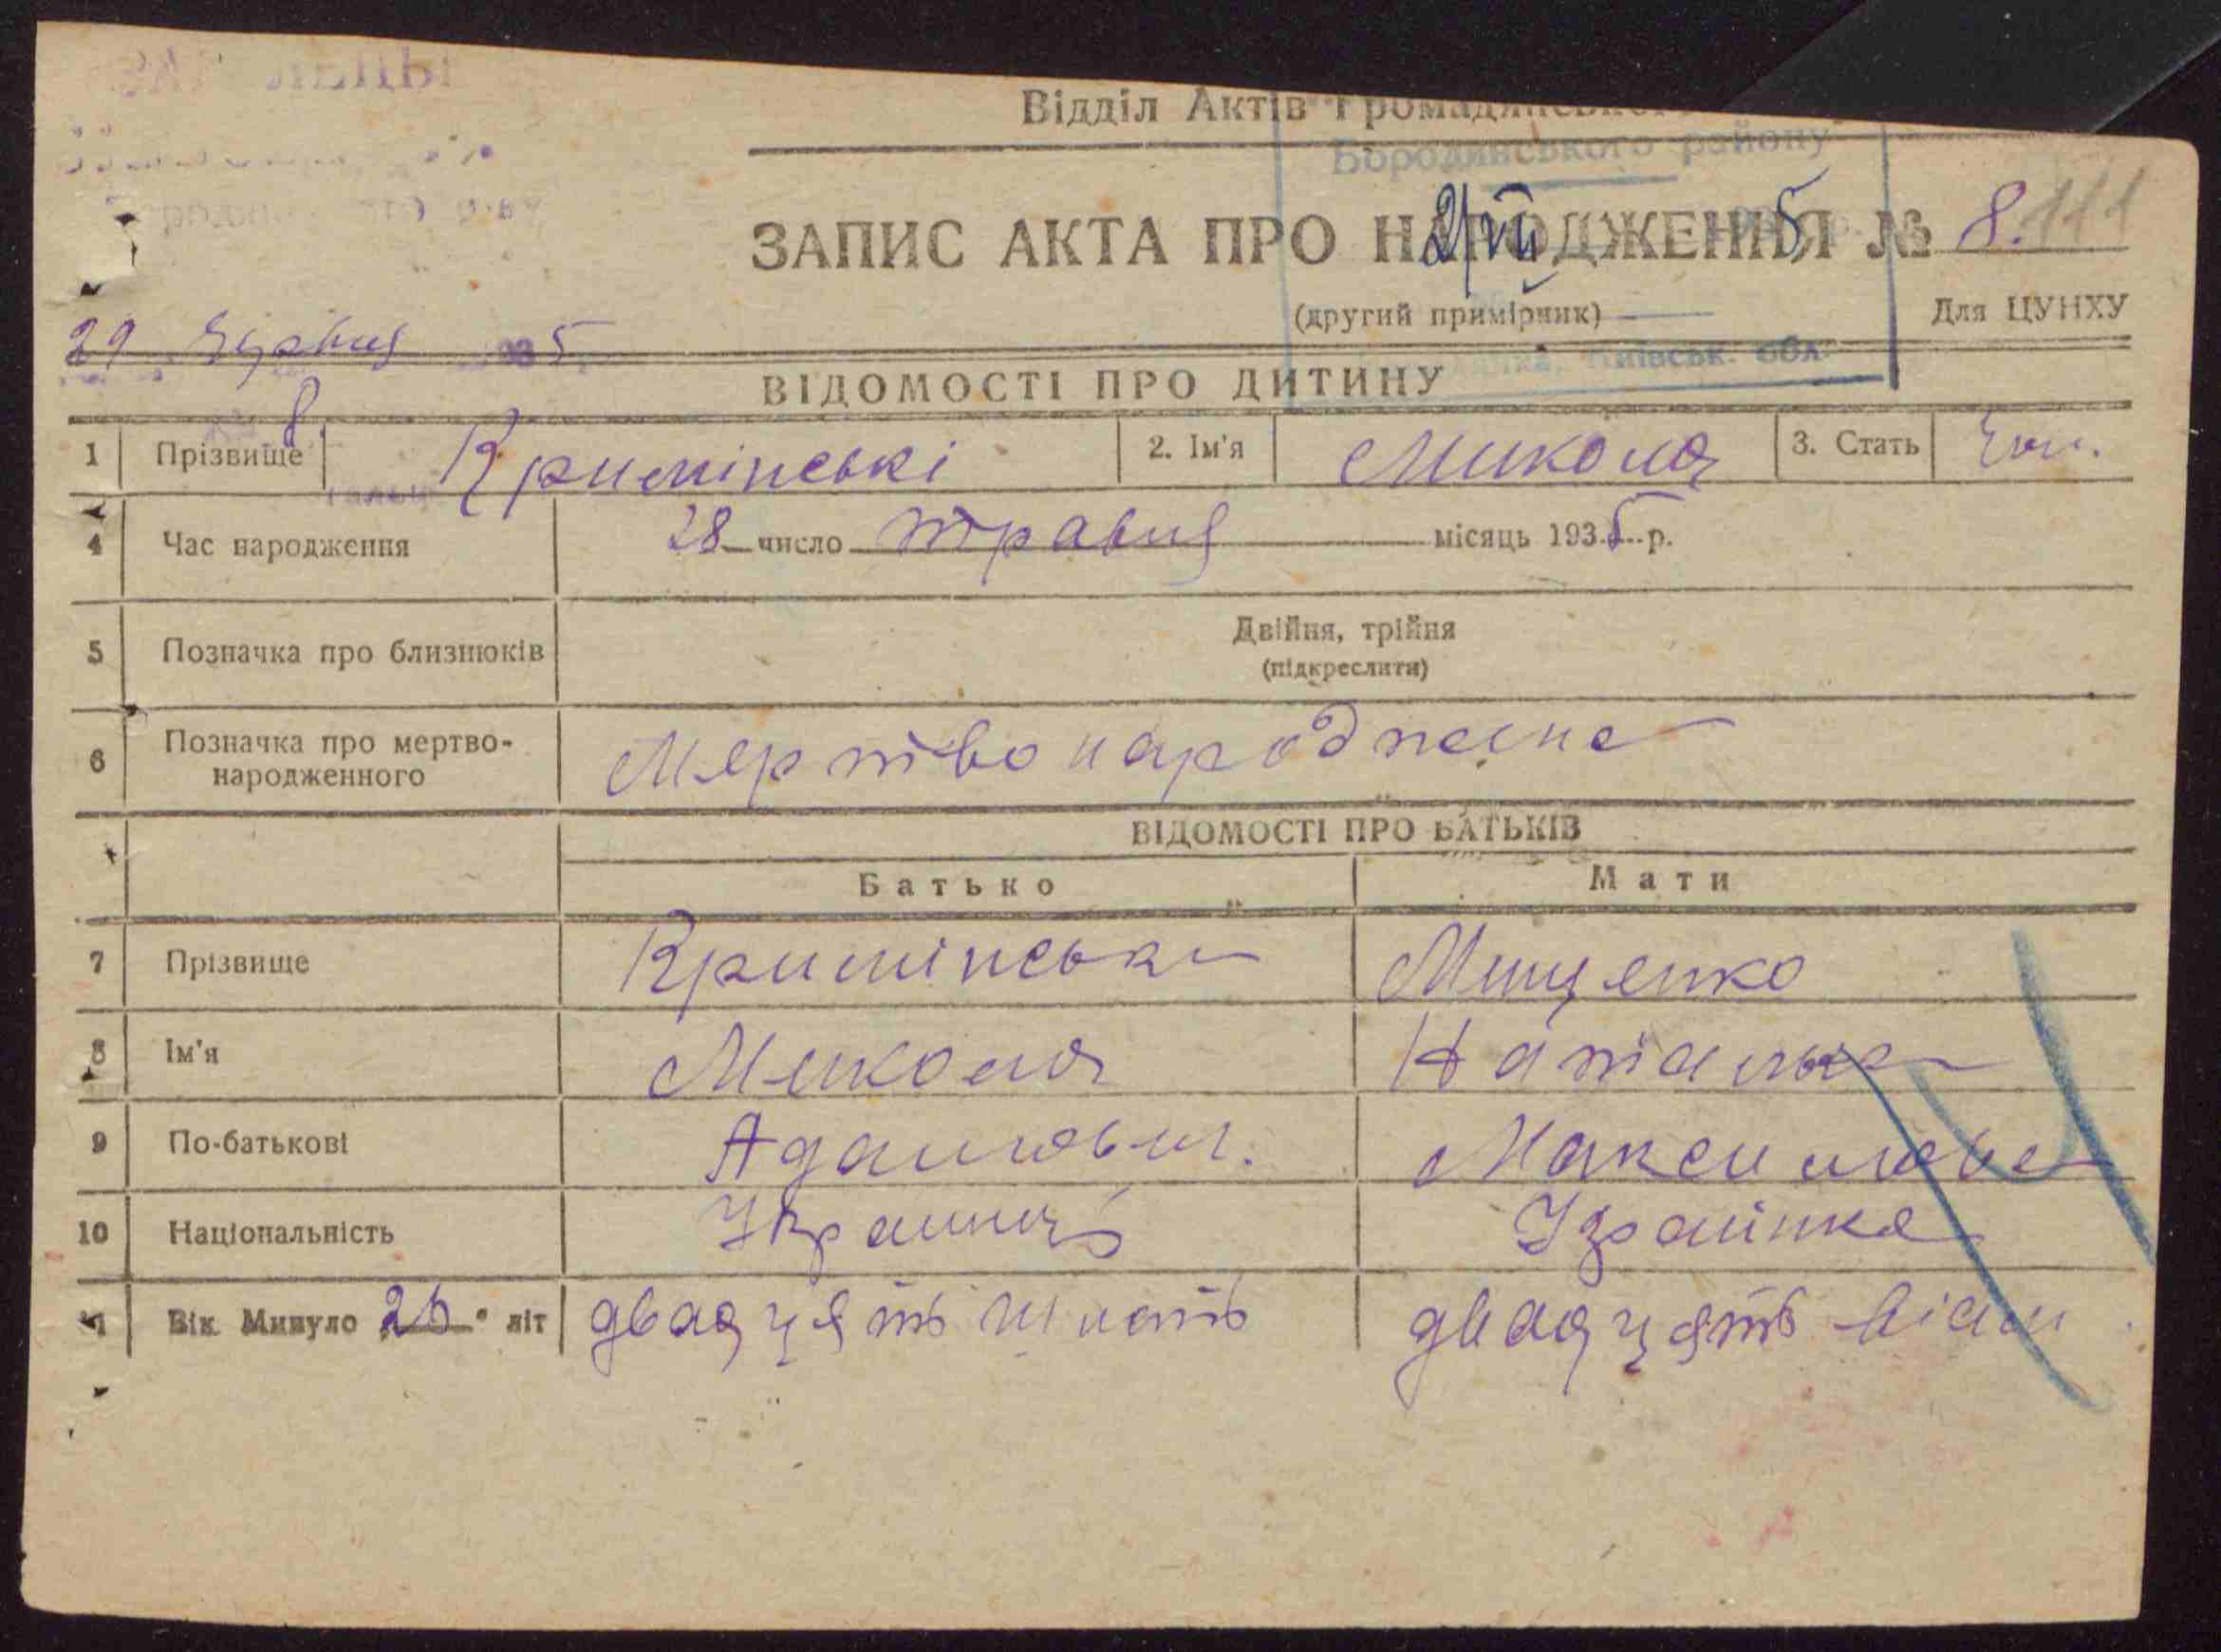 Відділ Актів Громадянського
Бородянського району
2/VII 5
ЗАПИС АКТА ПРО НАРОДЖЕННЯ № 8. 111
(другий примірник) Для ЦУНХУ
29 червня 1935
Київськ. обл.
8.
ВІДОМОСТІ ПРО ДИТИНУ
1 Прізвище Кримінські 2. Ім'я Микола 3. Стать Чол.
4 Час народження 28 число травня місяць 1935 р.
5 Позначка про близнюків Двійня, трійня
(підкреслити)
6 Позначка про мертво-
народженного Мертвонароджене
ВІДОМОСТІ ПРО БАТЬКІВ
Батько Мати
7 Прізвище Кримінськи Мищенко
8 Ім'я Микола Наталья
9 По-батькові Адамович. Максимовна
10 Національність Украинць Украінка
Вік Минуло 26 літ двадцять шисть двадцять вісім